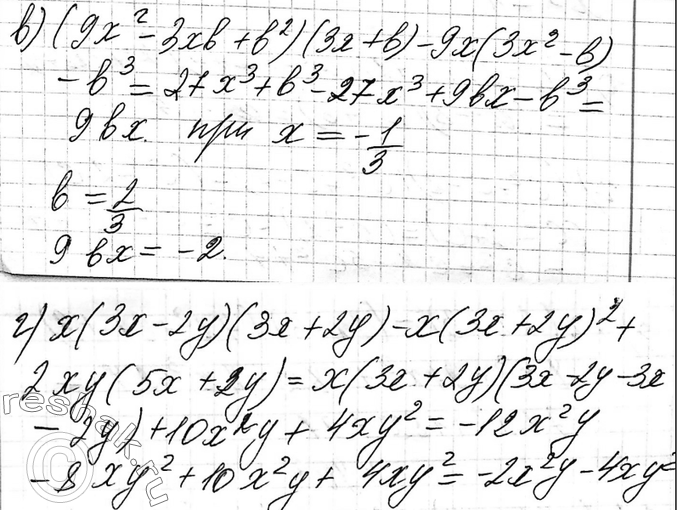 в) (9x² - 3xв + в²)(3x + в) - 9x(3x² - в)
- в³ = 27x³ + в³ - 27x³ + 9вx - в³ =
9вx. при x = -1/3
в = 2/3
9вx = -2.
г) x(3x - 2y)(3x + 2y) - x(3x + 2y)² +
2xy(5x + 2y) = x(3x + 2y)(3x - 2y - 3x
- 2y) + 10x²y + 4xy² = -12x²y
- 8xy² + 10x²y + 4xy² = -2x²y - 4xy²
reshak.ru